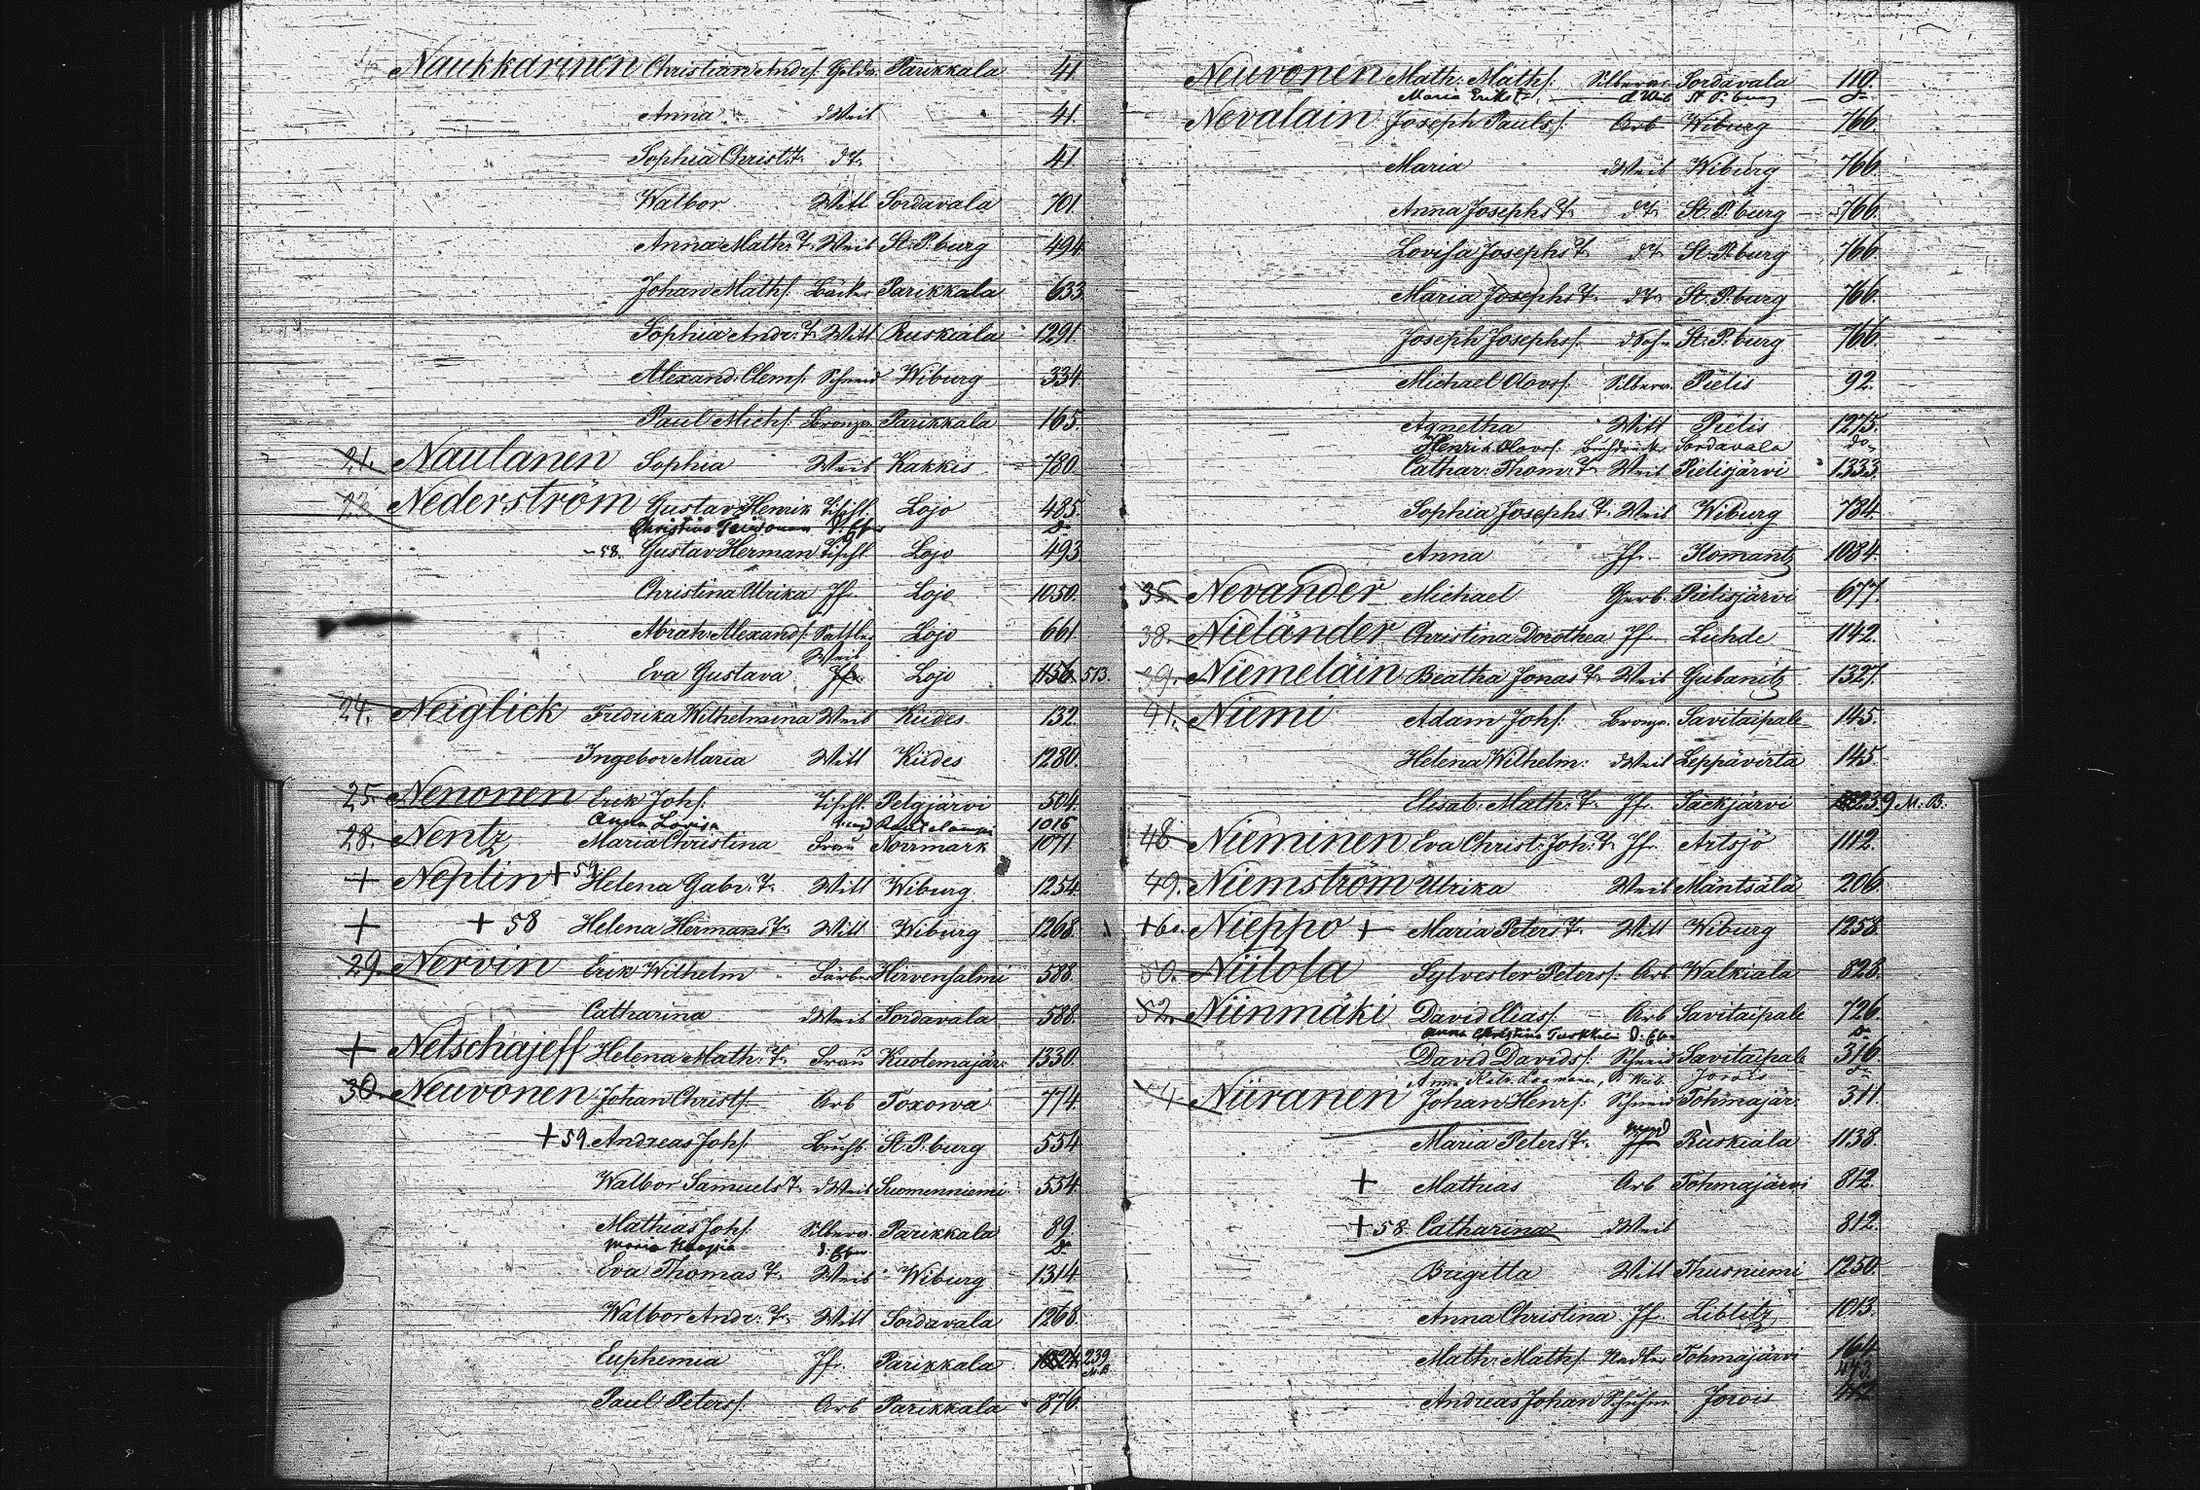 Naukkarinen Christian Andrs. Golda. Parikkala 41
Anna dWeib 41
Sophia Christ:T. dT. 41
Walbor Witt Sordavala 701
Anna Math:T. Weib St. P.burg 494
Johan Maths. Bäcker Parikkala 633
Sophia Andr:T. Witt Ruskiala 1291
Alexand. Clems. Schneid Wiburg 334
Paul Michs. Bronza. Parikkala 165
21. Naulanen Sophia Weib Kakkis 780
23. Nederström Gustav Henrik Tischl. Lojo 485
Christina D. Efru Do
-58. Gustav Herman Tischl. Lojo 493
Christina Ulrika Jf. Lojo 1050.
Abrah: Alexands. Sattler Lojo 661
Weib
Eva Gustava Jfr. Lojo 1156. 513.
24. Neiglick Fredrika Wilhelmina Weib Kides 132
Ingebor Maria Witt Kides 1280.
25. Nenonen Erik Johs. Tischl. Pelgjärvi 504.
Anna Lovisa 1016
28. Nentz Maria Christina Frau Norrmark 1071
+ Neplin +59 Helena Gabr. T. Witt Wiburg 1254
+ +58 Helena Hermans T. Witt Wiburg 1268
29. Nervin Erik Wilhelm Färber Hirvensalmi 588.
Catharina dWeib Sordavala 588.
+ Netschajeff Helena Math: T. Frau Kuolemajär: 1330.
30. Neuvonen Johan Christs. Arb Toxowa 774
+59 Andreas Johs. Buchb. St. P.burg 554
Walbor Samuels T. dWeib Suomenniemi 554
Mathias Johs. Silbera. Parikkala 89.
Maria d. Efru Do
Eva Thomas T. Weib Wiburg 1314
Walbor Andr: T. Witt Sordavala 1268.
Euphemia Jf. Parikkala 1024. 239 M.B
Paul Peters. Arb Parikkala 876.
Neuvonen Math: Maths. Silberar Sordavala 110.
Maria Eriks T. d Weib St P:burg do
Nevalain Joseph Pauls. Arb Wiburg 766.
Maria dWeib Wiburg 766.
Anna Josephs T. dT. St. P.burg 766.
Lovisa Josephs T. dT. St. P.burg 766.
Maria Josephs T. dT. St. P.burg 766.
Joseph Josephs. dSohn St. P.burg 766.
Michael Olovs. Silbera. Pielis 92.
Agnetha Witt Pielis 1275.
Henrik Olovs. Sordavala do.
Cathar: Thom: T. Weib Pielisjärvi 1333
Sophia Josephs T. Weib Wiburg 784.
Anna Jf. Ilomantz 1084.
35. Nevander Michael Gerb. Pielisjärvi 677.
38. Nieländer Christina Dorothea Jf. Liehde 1142.
39. Niemeläin Beatha Jonas T. Weib Gubanitz 1327.
41. Niemi Adam Johs. Bronza. Savitaipale 145.
Helena Wilhelm: dWeib Leppävirta 145.
Elisab: Math: T. Jf. Säckjärvi 239 M.B.
48 Nieminen Eva Christ: Joh: T. Jf. Artsjö 1112.
49. Niemström Ulrika Weib Mäntsälä 206
+60. Nieppo + Maria Peters T. Witt Wiburg 1258.
50. Niilola Sylvester Peters. Arb Walkiala 828.
52. Niinmäki David Elias. Arb Savitaipale 726.
Anna Christina D. Efru Do
David Davids. Schneid Savitaipale 316.
Anna D Weib. Jorois do
54. Niiranen Johan Henrs. Schneid Tohmajär. 311.
Maria Peters T. Ruskiala 1138.
+ Mathias Arb Tohmajärvi 812.
+58 Catharina dWeib 812.
Brigitta Witt Thusniemi 1250.
Anna Christina Jf. Liblitz 1013.
Math: Maths. Nadler Tohmajärvi 164
473.
Andreas Johan Schuhm Jorois